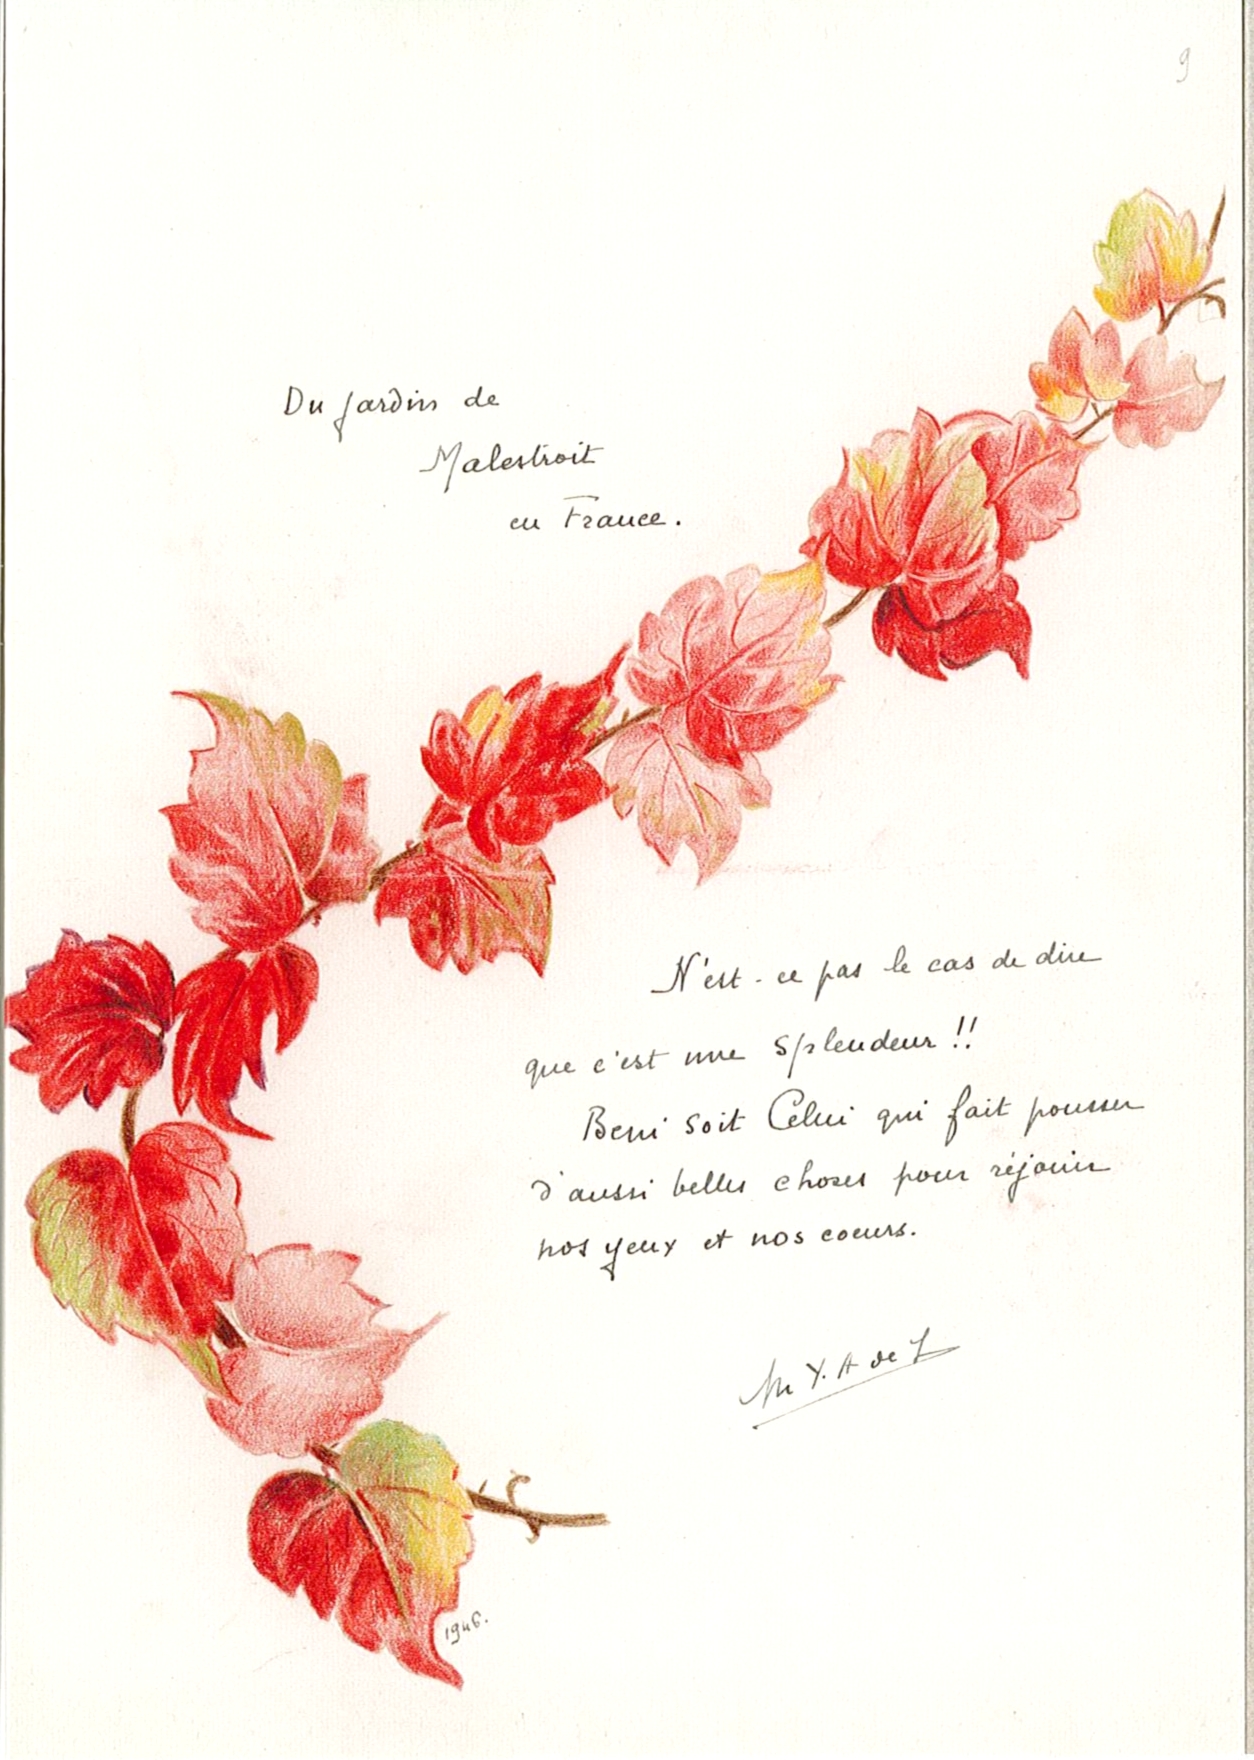 9
Du Jardin de
Malestroit
en France.
N'est-ce pas le cas de dire
que c'est une splendeur !!
Beni soit Celui qui fait pousser
d'aussi belles choses pour réjouir
nos yeux et nos coeurs.
M Y. A de J
1946.